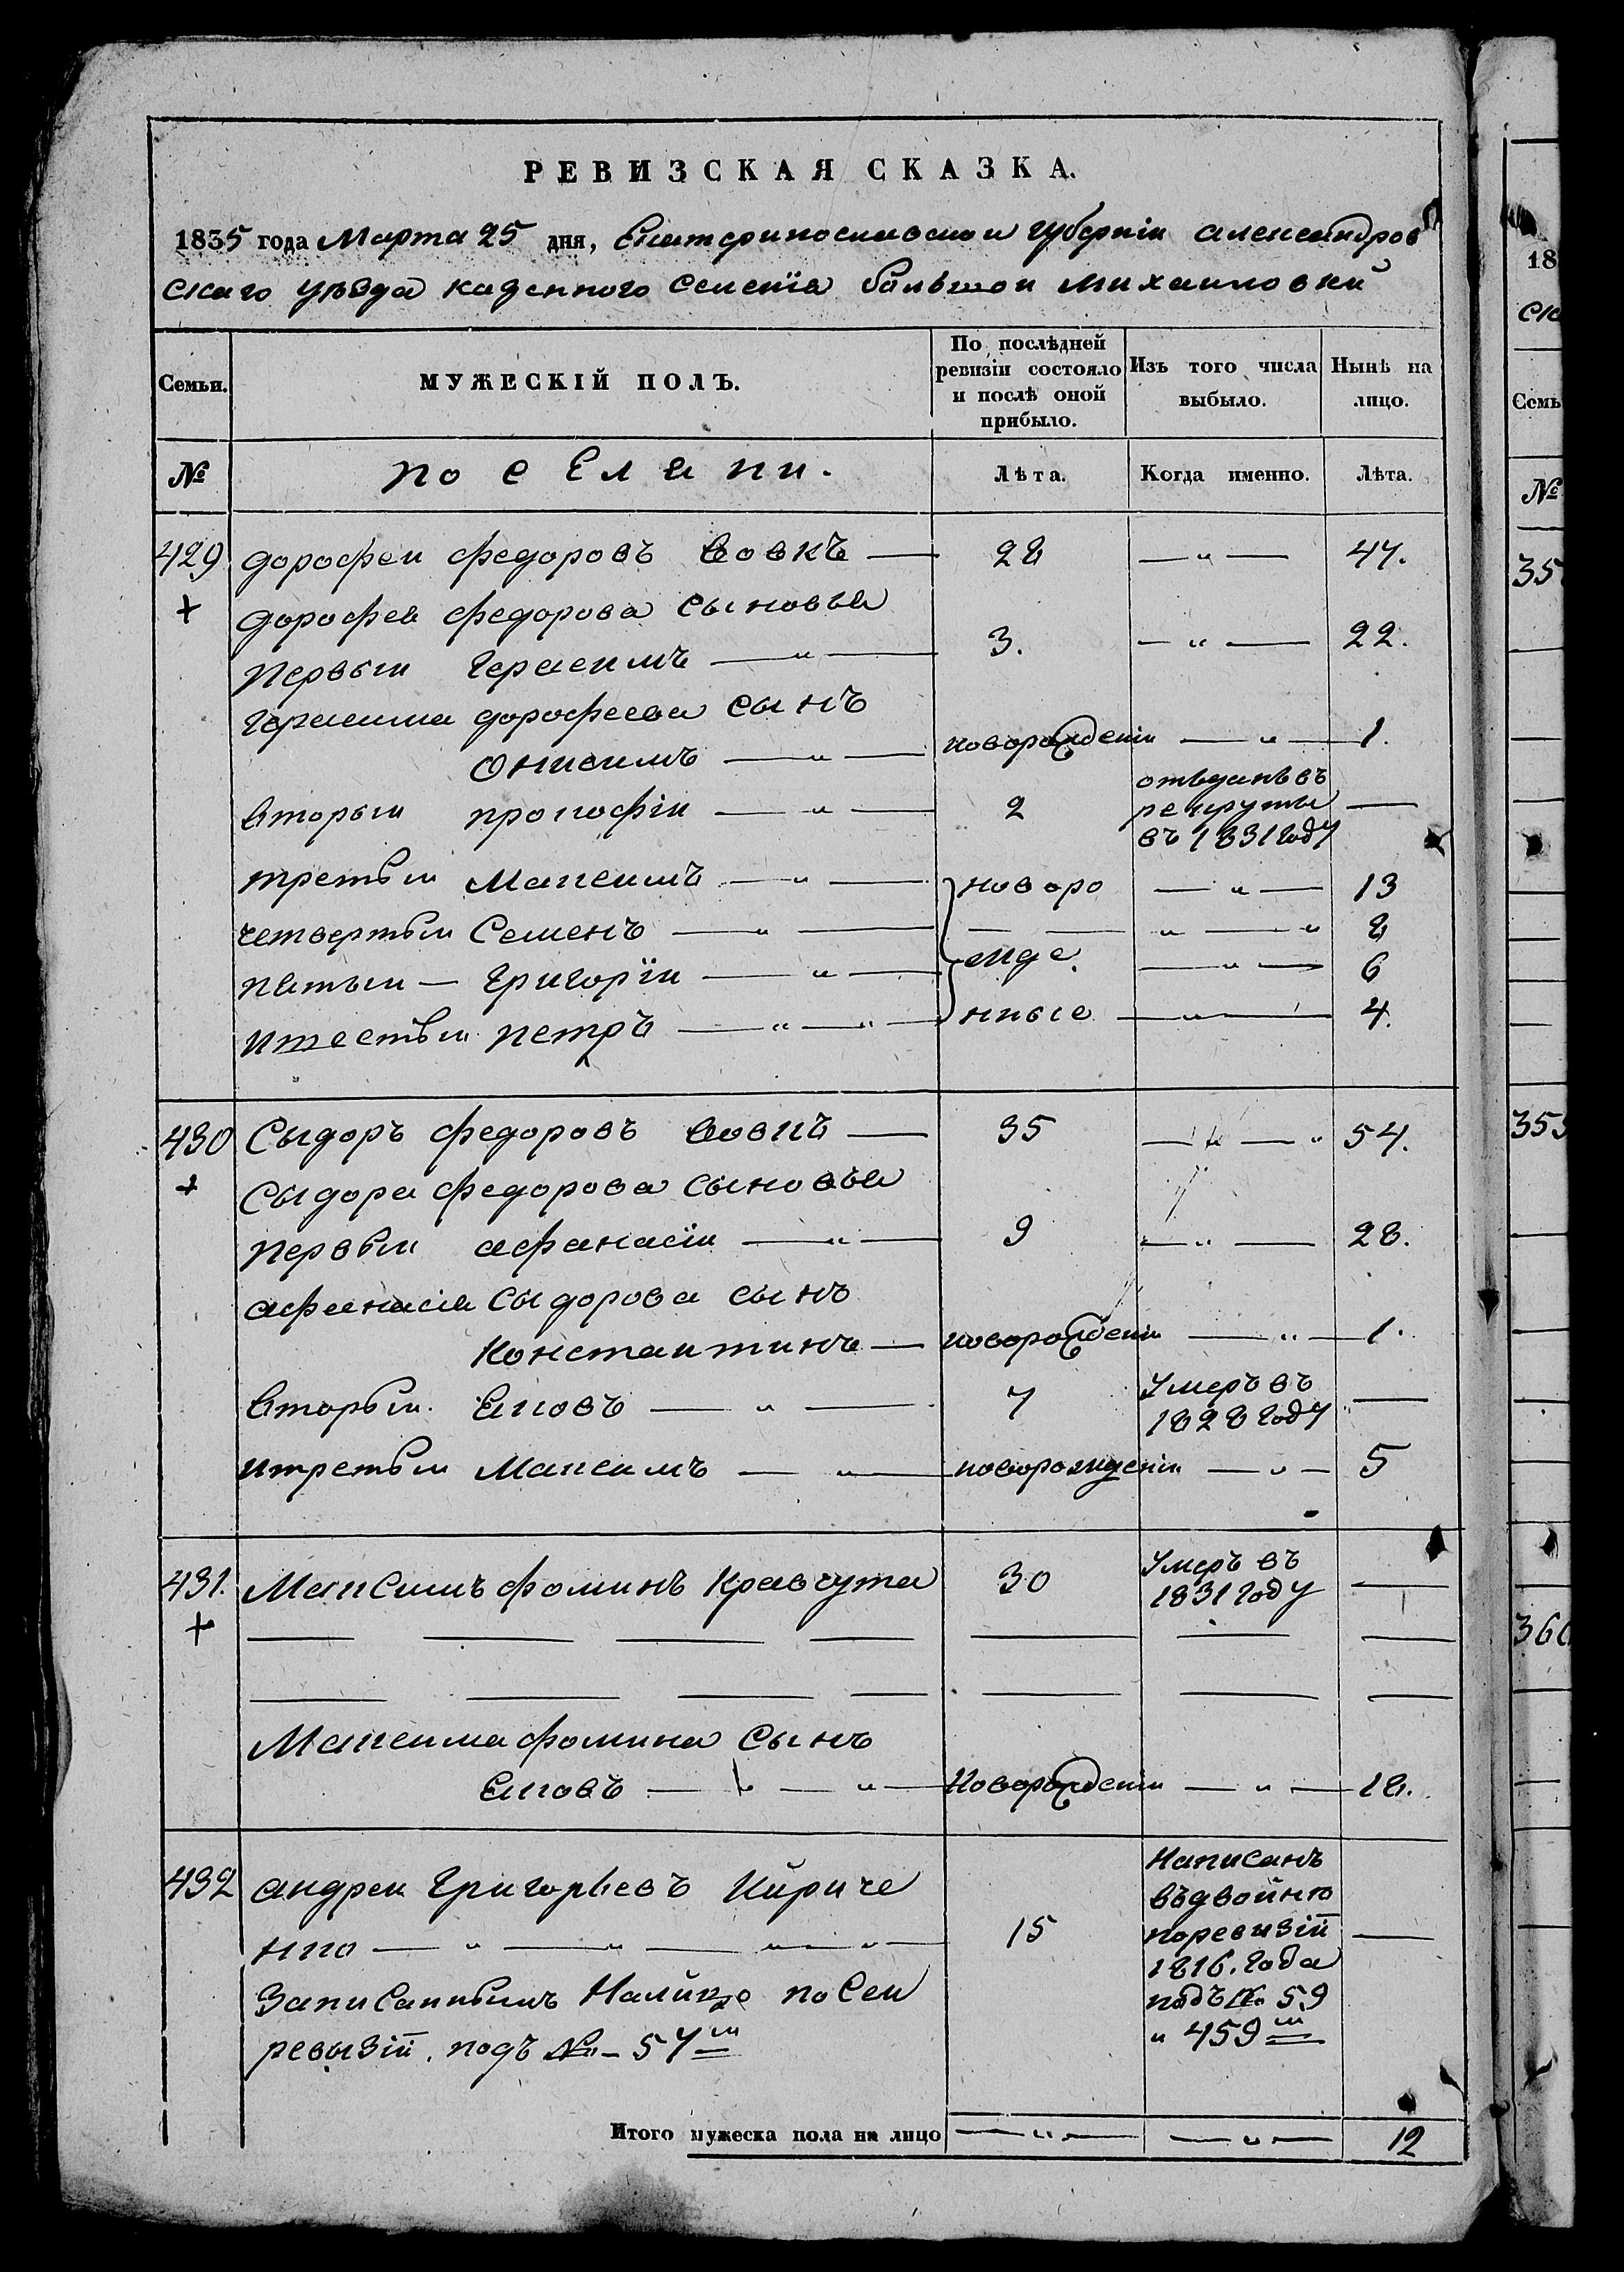 РЕВИЗСКАЯ СКАЗКА.
1835 года Марта 25 дня, Екатеринославской губерніи александров
скаго уѣзда казенного Селенія большой михайловки
Семьи. МУЖЕСКІЙ ПОЛЪ. По послѣдней ревизіи состояло и послѣ оной прибыло. Изъ того числа выбыло. Нынѣ на лицо.
№ поселяни. Лѣта. Когда именно. Лѣта.
429 дорофей федоровъ Вовкъ — 28 — " — 47.
+ дорофея федорова сыновья
первый Герасимъ — " — 3. — " — 22.
Герасима дорофеева сынъ
Онисимъ — " — новорожденій — " — 1.
вторый прокофій — " — 2 отъданъ въ рекруты въ 1831 году —
третьй Максимъ — " — новоро — " — 13
четвертый Семенъ — " — — — " — " 8
пятый — Григорій — " — жде — " — 6
ишестый петръ — " — " — нные — " — 4.
430 Сыдоръ федоровъ Вовкъ — 35 — " — " 54.
+ Сыдора федорова сыновья
первый афанасій — " — 9 — " — 28.
афанасія Сыдорова сынъ
Константинъ — новорожденій — " — 1.
вторый Яковъ — " — 7 Умеръ въ 1828 году —
итретьй Максимъ — " — новорожденій — " — 5
431. Максимъ фоминъ Кравчута 30 Умеръ въ 1831 году —
+
Максима фомина сынъ
Яковъ — " — " — Новорожденій — " — 18.
432 андрей Григорьевъ Кириче
нко — " — " — " — " — 15 Написанъ въдвойню поревизіи 1816. года подъ № 59 и 459м —
Записанный посей
ревызіи. подъ № — 57м
Итого мужеска пола на лицо — " — — " — 12
18
ск
Семь
№
35
355
360